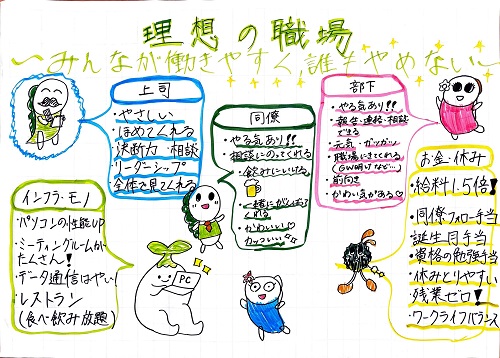 理想の職場
〜みんなが働きやすく、誰もやめない〜
上司
・やさしい
・ほめてくれる
・決断力・相談
・リーダーシップ
・全体を見てくれる
同僚
・やる気あり!!
・相談にのってくれる
・飲みにいける
・一緒にがんばってくれる
・かわいい♡
・カッコいい
部下
・やる気あり!!
・報告・連絡・相談
できる
・元気・ガッツ
・職場にきてくれる
(GW明けなど…)
・前向き
・かわい気がある♡
インフラ・モノ
・パソコンの性能UP
・ミーティングルームが
たくさん!
・データ通信はやい!
・レストラン
(食べ飲み放題)
PC
お金・休み
・給料1.5倍!
・同僚フォロー手当
・誕生月手当
・資格の勉強手当
・休みとりやすい
・残業ゼロ!
・ワークライフバランス